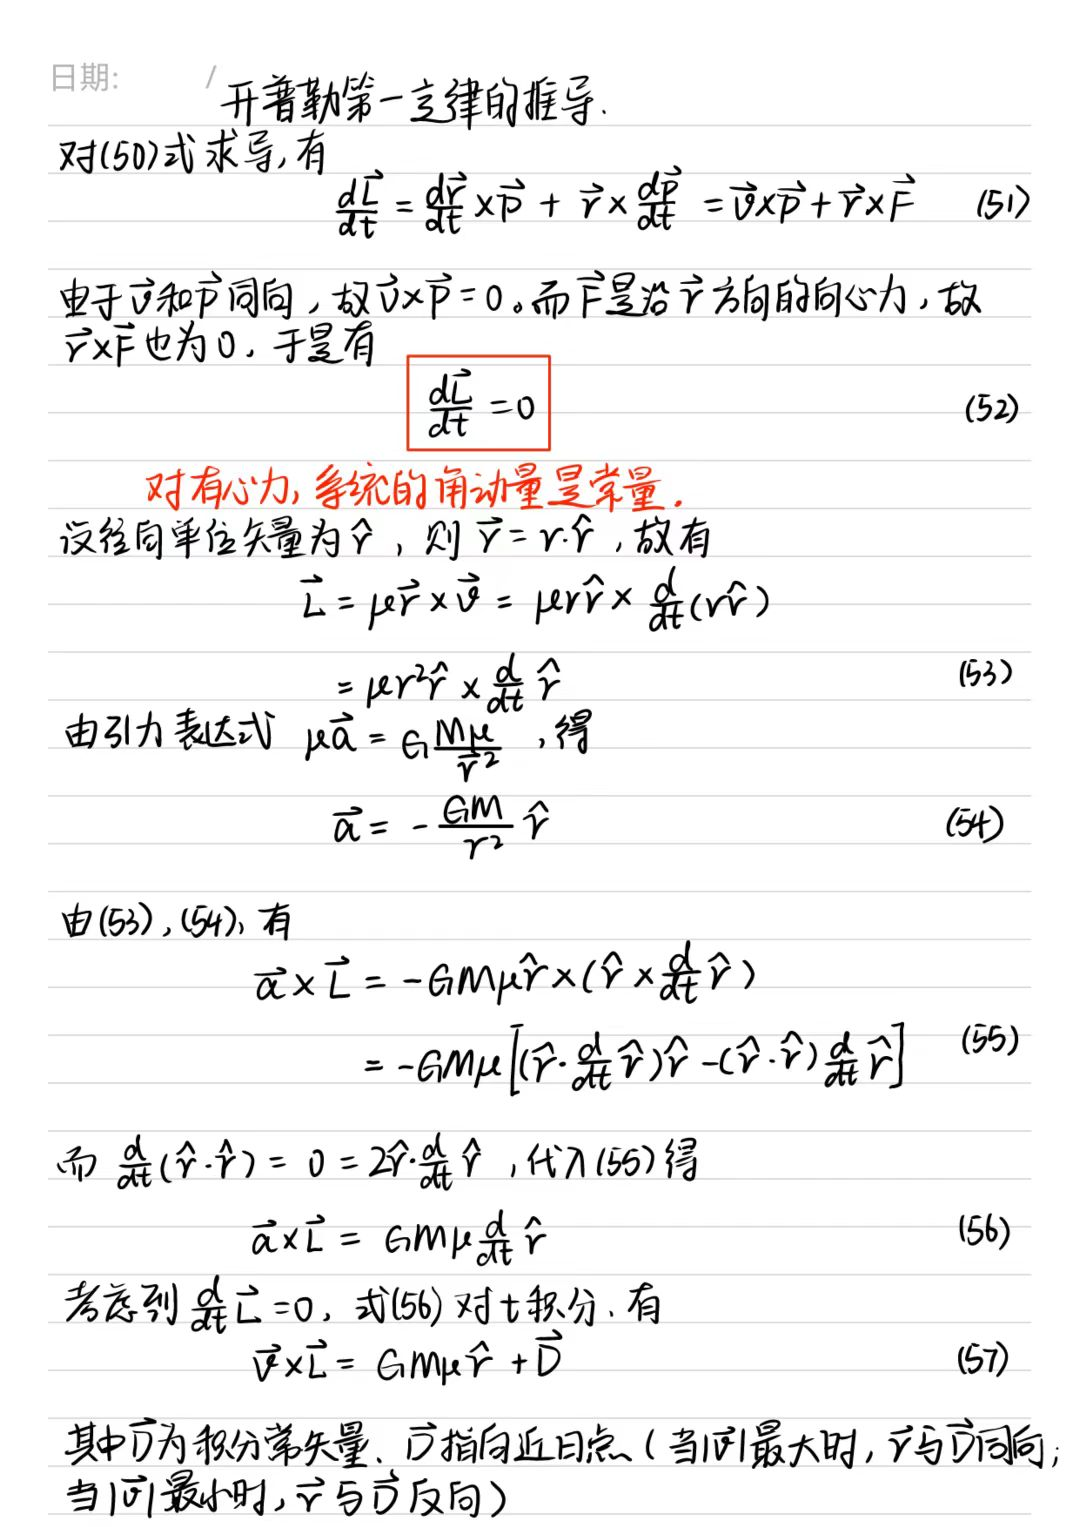 日期: /
开普勒第一定律的推导.
对(50)式求导,有
dL⃗/dt = dr⃗/dt × p⃗ + r⃗ × dp⃗/dt = v⃗×p⃗ + r⃗×F⃗ (51)
由于v⃗和p⃗同向,故v⃗×p⃗=0。而F⃗是沿r⃗方向的向心力,故
r⃗×F⃗也为0,于是有
dL⃗/dt = 0 (52)
对有心力,系统的角动量是常量.
设径向单位矢量为r̂,则r⃗=r·r̂,故有
L⃗ = μr⃗×v⃗ = μrr̂ × d/dt(rr̂)
= μr²r̂ × d/dt r̂ (53)
由引力表达式 μa⃗ = G Mμ/r⃗², 得
a⃗ = - GM/r² r̂ (54)
由(53),(54),有
a⃗×L⃗ = -GMμr̂×(r̂× d/dt r̂)
= -GMμ[(r̂· d/dt r̂)r̂ -(r̂·r̂) d/dt r̂] (55)
而 d/dt(r̂·r̂) = 0 = 2r̂· d/dt r̂ ,代入(55)得
a⃗×L⃗ = GMμ d/dt r̂ (56)
考虑到 d/dt L⃗ =0, 式(56)对t积分、有
v⃗×L⃗ = GMμr̂ + D⃗ (57)
其中D⃗为积分常矢量、D⃗指向近日点(当|v⃗|最大时,r⃗与D⃗同向;
当|v⃗|最小时,r⃗与D⃗反向)